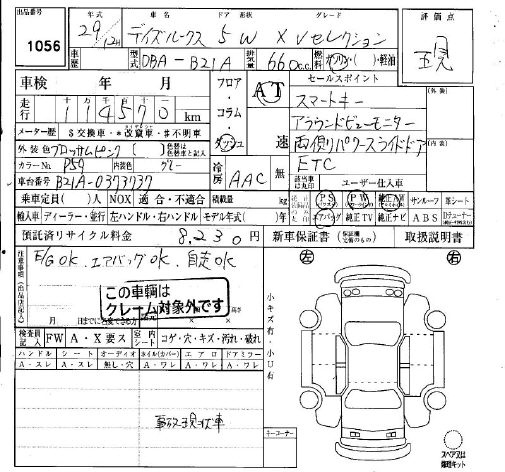 出品番号 年式 車名 ドア 形状 グレード 評価点
1056
29/12月 デイズルークス 5W Xセレクション 現
車歴 型式 DBA-B21A 排気量 660c.c. ガソリン・( )・軽油
車検 年 月 フロア・コラム・ダッシュ AT 速 セールスポイント
走行 114570 km
スマートキー
メーター歴 $交換車・*改竄車・#不明車
アラウンドビューモニター
外装色 ブロッサムピンク
両側リパワースライドドア
カラーNo. P59 内装色 グレー
ETC
車台番号 B21A-0373737 冷房 AAC
ユーザー仕入車
乗車定員( )人 NOX 適合・不適合 積載量 kg PS PW 純正AW サンルーフ 革シート
輸入車 ディーラー・並行 左ハンドル・右ハンドル モデル年式( )年 エアバッグ 純正TV 純正ナビ ABS
預託済リサイクル料金 8,230 円 新車保証書 取扱説明書
注意事項(出品店記入)
E/G OK、エアバッグOK、自走OK
左 右
この車輌は
クレーム対象外です
小キズ有・小U有
検査員記入 FW A・X要ス 室内シート コゲ・穴・キズ・汚れ・破れ
ハンドル シート オーディオ ホイル(カバー) エアロ ドアミラー
A・スレ A・スレ 無し・穴 A・ワレ A・ワレ A・ワレ
事故現状車
キーコーナー
スペアタイヤ
修理キット